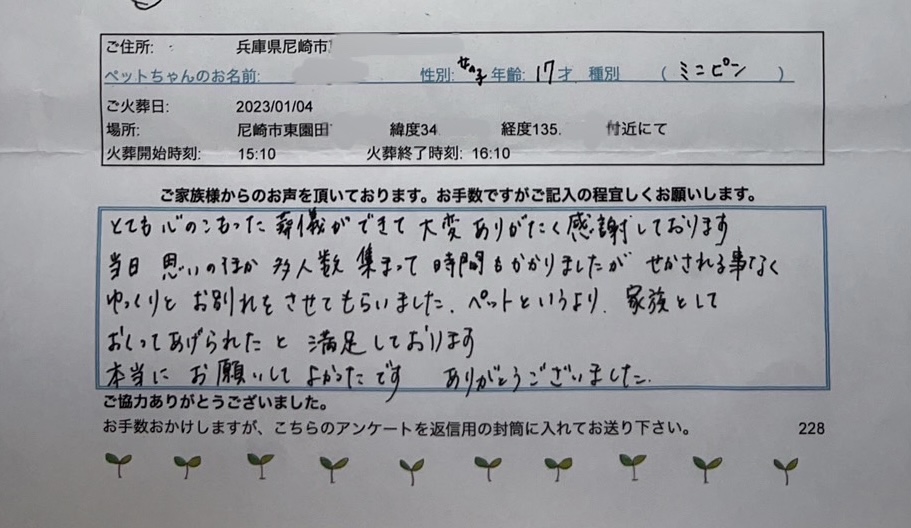 ご住所: 兵庫県尼崎市
ペットちゃんのお名前: 性別: 女の子 年齢: 17才 種別 ( ミニピン )
ご火葬日: 2023/01/04
場所: 尼崎市東園田 緯度34. 経度135. 付近にて
火葬開始時刻: 15:10 火葬終了時刻: 16:10
ご家族様からのお声を頂いております。お手数ですがご記入の程宜しくお願いします。
とても心のこもった葬儀ができて大変ありがたく感謝しております
当日 思いのほか 多人数 集まって 時間もかかりましたが せかされる事なく
ゆっくりと お別れを させてもらいました. ペットというより. 家族として
おくってあげられたと 満足しております
本当に お願いして よかったです ありがとうございました.
ご協力ありがとうございました。
お手数おかけしますが、こちらのアンケートを返信用の封筒に入れてお送り下さい。 228